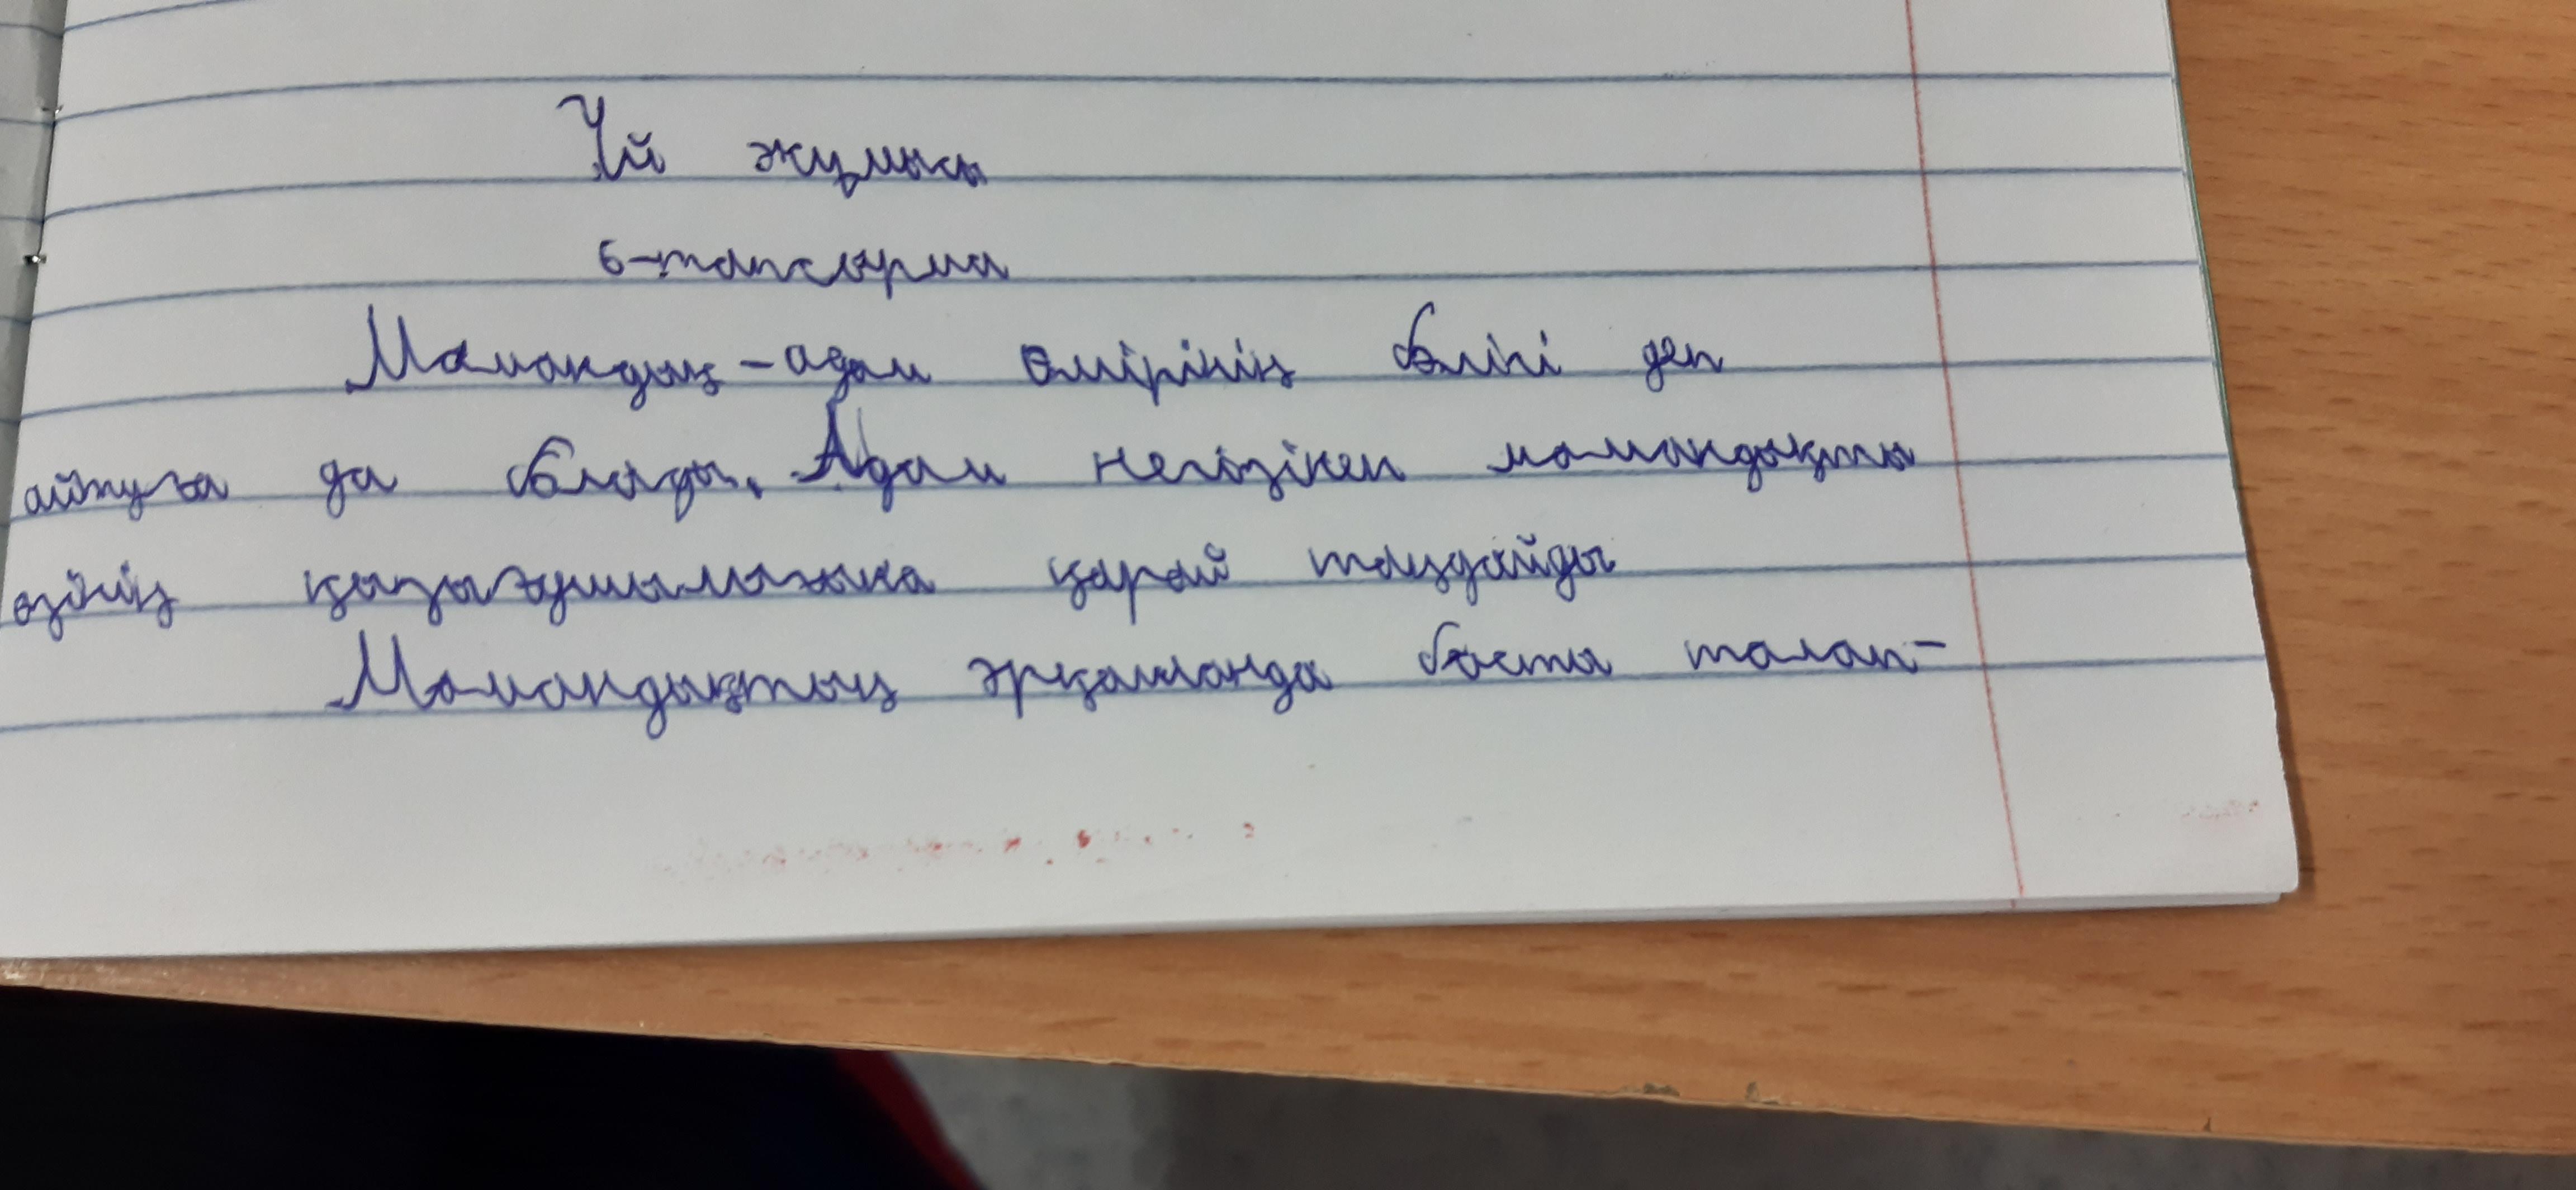 Үй жұмысы
6-тапсырма
Мамандық - адам өмірінің бөлігі деп
айтуға да болады. Адам негізінен мамандықты
өзінің қызығушылығына қарай таңдайды
Мамандықтың әрқашанда басты талап-